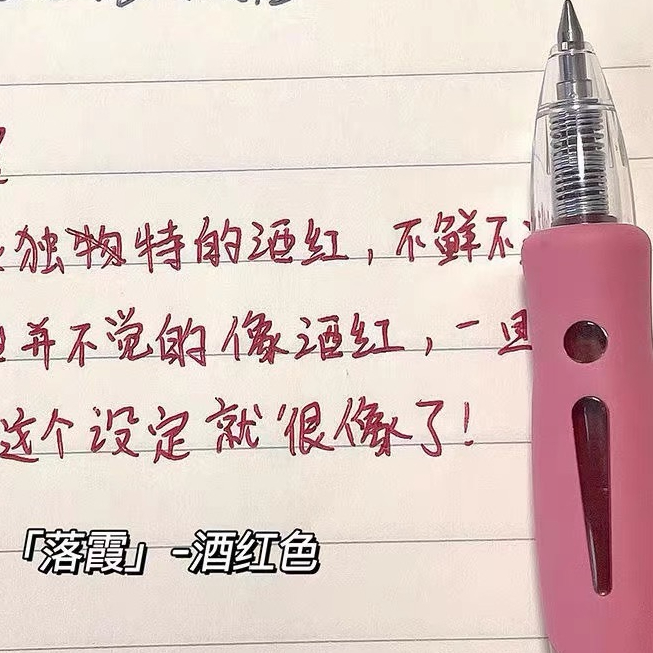 独特的酒红，不鲜不
并不觉的像酒红，一旦
这个设定就很像了！
「落霞」-酒红色